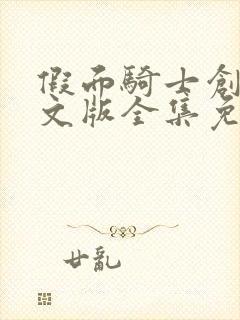 假而騎士創
文版全集免
廿亂